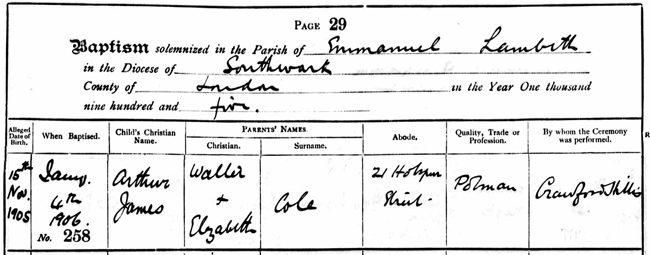 PAGE 29
Baptism solemnized in the Parish of Emmanuel Lambeth
in the Diocese of Southwark
County of London in the Year One thousand
nine hundred and five.
Alleged Date of Birth. When Baptised. Child's Christian Name. PARENTS' NAMES. Abode. Quality, Trade or Profession. By whom the Ceremony was performed. R
Christian. Surname.
15th Nov. 1905
Jany. 4th 1906.
No. 258
Arthur
James
Walter
+
Elizabeth
Cole
21
Street.
Crawford Hillis